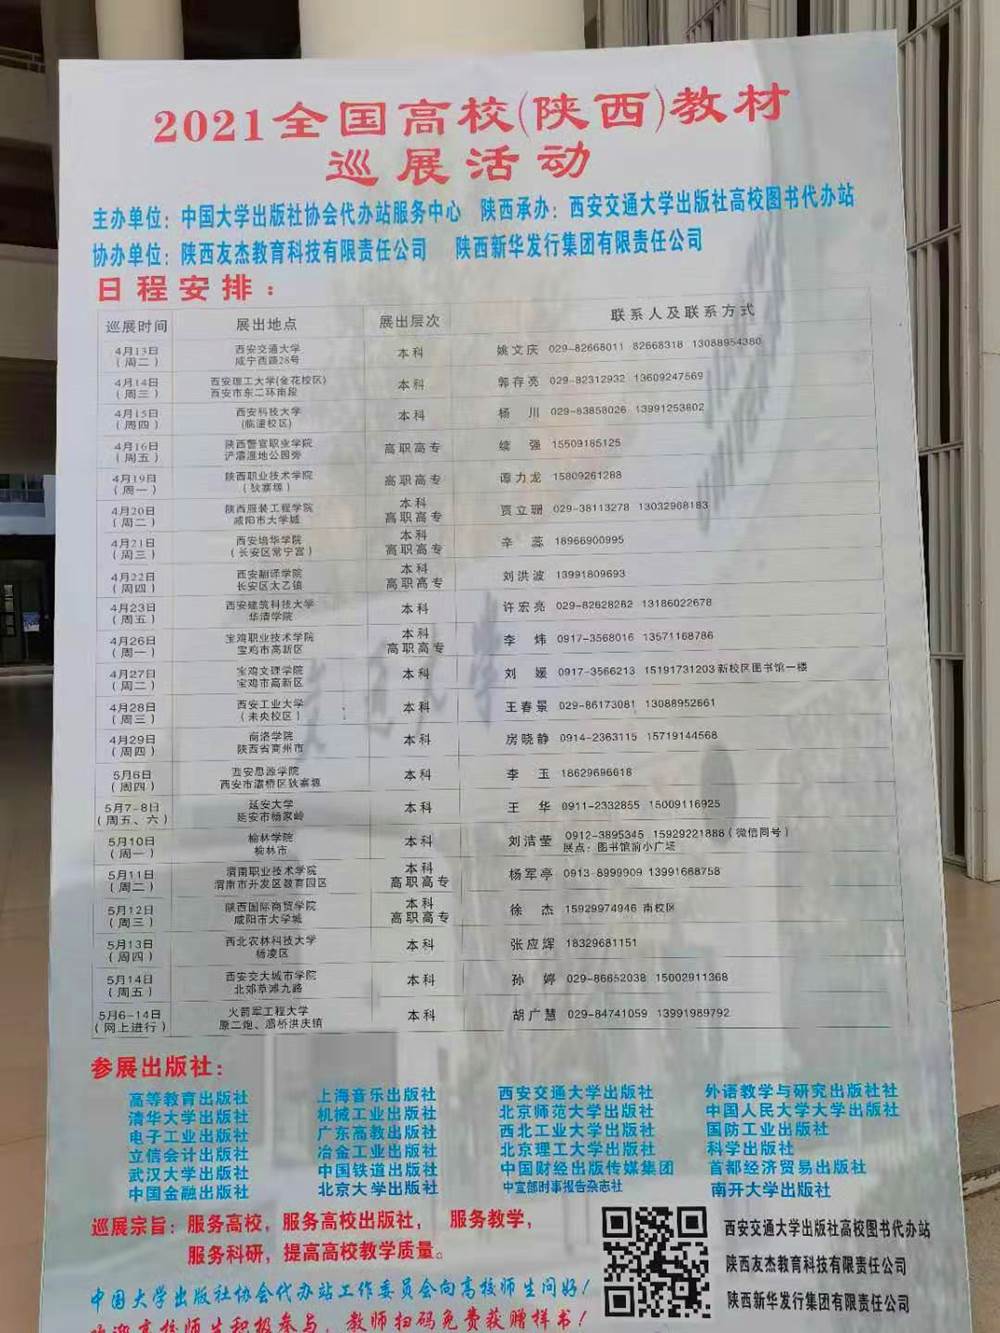 2021全国高校(陕西)教材
巡展活动
主办单位：中国大学出版社协会代办站服务中心 陕西承办：西安交通大学出版社高校图书代办站
协办单位：陕西友杰教育科技有限责任公司 陕西新华发行集团有限责任公司
日程安排：
巡展时间 展出地点 展出层次 联系人及联系方式
4月13日 西安交通大学 本科 姚文庆 029-82668011 82668318 13088954380
(周二) 咸宁西路28号
4月14日 西安理工大学(金花校区) 本科 郭存亮 029-82312932 13609247569
(周三) 西安市东二环南段
4月15日 西安科技大学 本科 杨川 029-83858026 13991253802
(周四) (临潼校区)
4月16日 陕西警官职业学院 高职高专 续强 15509185125
(周五) 浐灞湿地公园旁
4月19日 陕西职业技术学院 高职高专 谭力龙 15809261288
(周一) (狄寨塬)
4月20日 陕西服装工程学院 本科 贾立珊 029-38113278 13032968183
(周二) 咸阳市大学城 高职高专
4月21日 西安培华学院 本科 辛蕊 18966900995
(周三) (长安区常宁宫) 高职高专
4月22日 西安翻译学院 本科 刘洪波 13991809693
(周四) 长安区太乙镇 高职高专
4月23日 西安建筑科技大学 本科 许宏亮 029-82628262 13186022678
(周五) 华清学院
4月26日 宝鸡职业技术学院 本科 李炜 0917-3568016 13571168786
(周一) 宝鸡市高新区 高职高专
4月27日 宝鸡文理学院 本科 刘媛 0917-3566213 15191731203 新校区图书馆一楼
(周二) 宝鸡市高新区
4月28日 西安工业大学 本科 王春景 029-86173081 13088952661
(周三) (未央校区)
4月29日 商洛学院 本科 房晓静 0914-2363115 15719144568
(周四) 陕西省商州市
5月6日 西安思源学院 本科 李玉 18629696618
(周四) 西安市灞桥区狄寨塬
5月7-8日 延安大学 本科 王华 0911-2332855 15009116925
(周五、六) 延安市杨家岭
5月10日 榆林学院 本科 刘洁莹 0912-3895345 15929221888(微信同号)
(周一) 榆林市 展点：图书馆前小广场
5月11日 渭南职业技术学院 本科 杨军亭 0913-8999909 13991668758
(周二) 渭南市开发区教育园区 高职高专
5月12日 陕西国际商贸学院 本科 徐杰 15929974946 南校区
(周三) 咸阳市大学城 高职高专
5月13日 西北农林科技大学 本科 张应辉 18329681151
(周四) 杨凌区
5月14日 西安交大城市学院 本科 孙婷 029-86652038 15002911368
(周五) 北郊草滩九路
5月6-14日 火箭军工程大学 本科 胡广慧 029-84741059 13991989792
(网上进行) 原二炮、灞桥洪庆镇
参展出版社：
高等教育出版社 上海音乐出版社 西安交通大学出版社 外语教学与研究出版社社
清华大学出版社 机械工业出版社 北京师范大学出版社 中国人民大学大学出版社
电子工业出版社 广东高教出版社 西北工业大学出版社 国防工业出版社
立信会计出版社 冶金工业出版社 北京理工大学出版社 科学出版社
武汉大学出版社 中国铁道出版社 中国财经出版传媒集团 首都经济贸易出版社
中国金融出版社 北京大学出版社 中宣部时事报告杂志社 南开大学出版社
巡展宗旨：服务高校，服务高校出版社， 服务教学，
服务科研，提高高校教学质量。
西安交通大学出版社高校图书代办站
陕西友杰教育科技有限责任公司
陕西新华发行集团有限责任公司
中国大学出版社协会代办站工作委员会向高校师生问好！
欢迎高校师生积极参与，教师扫码免费获赠样书！